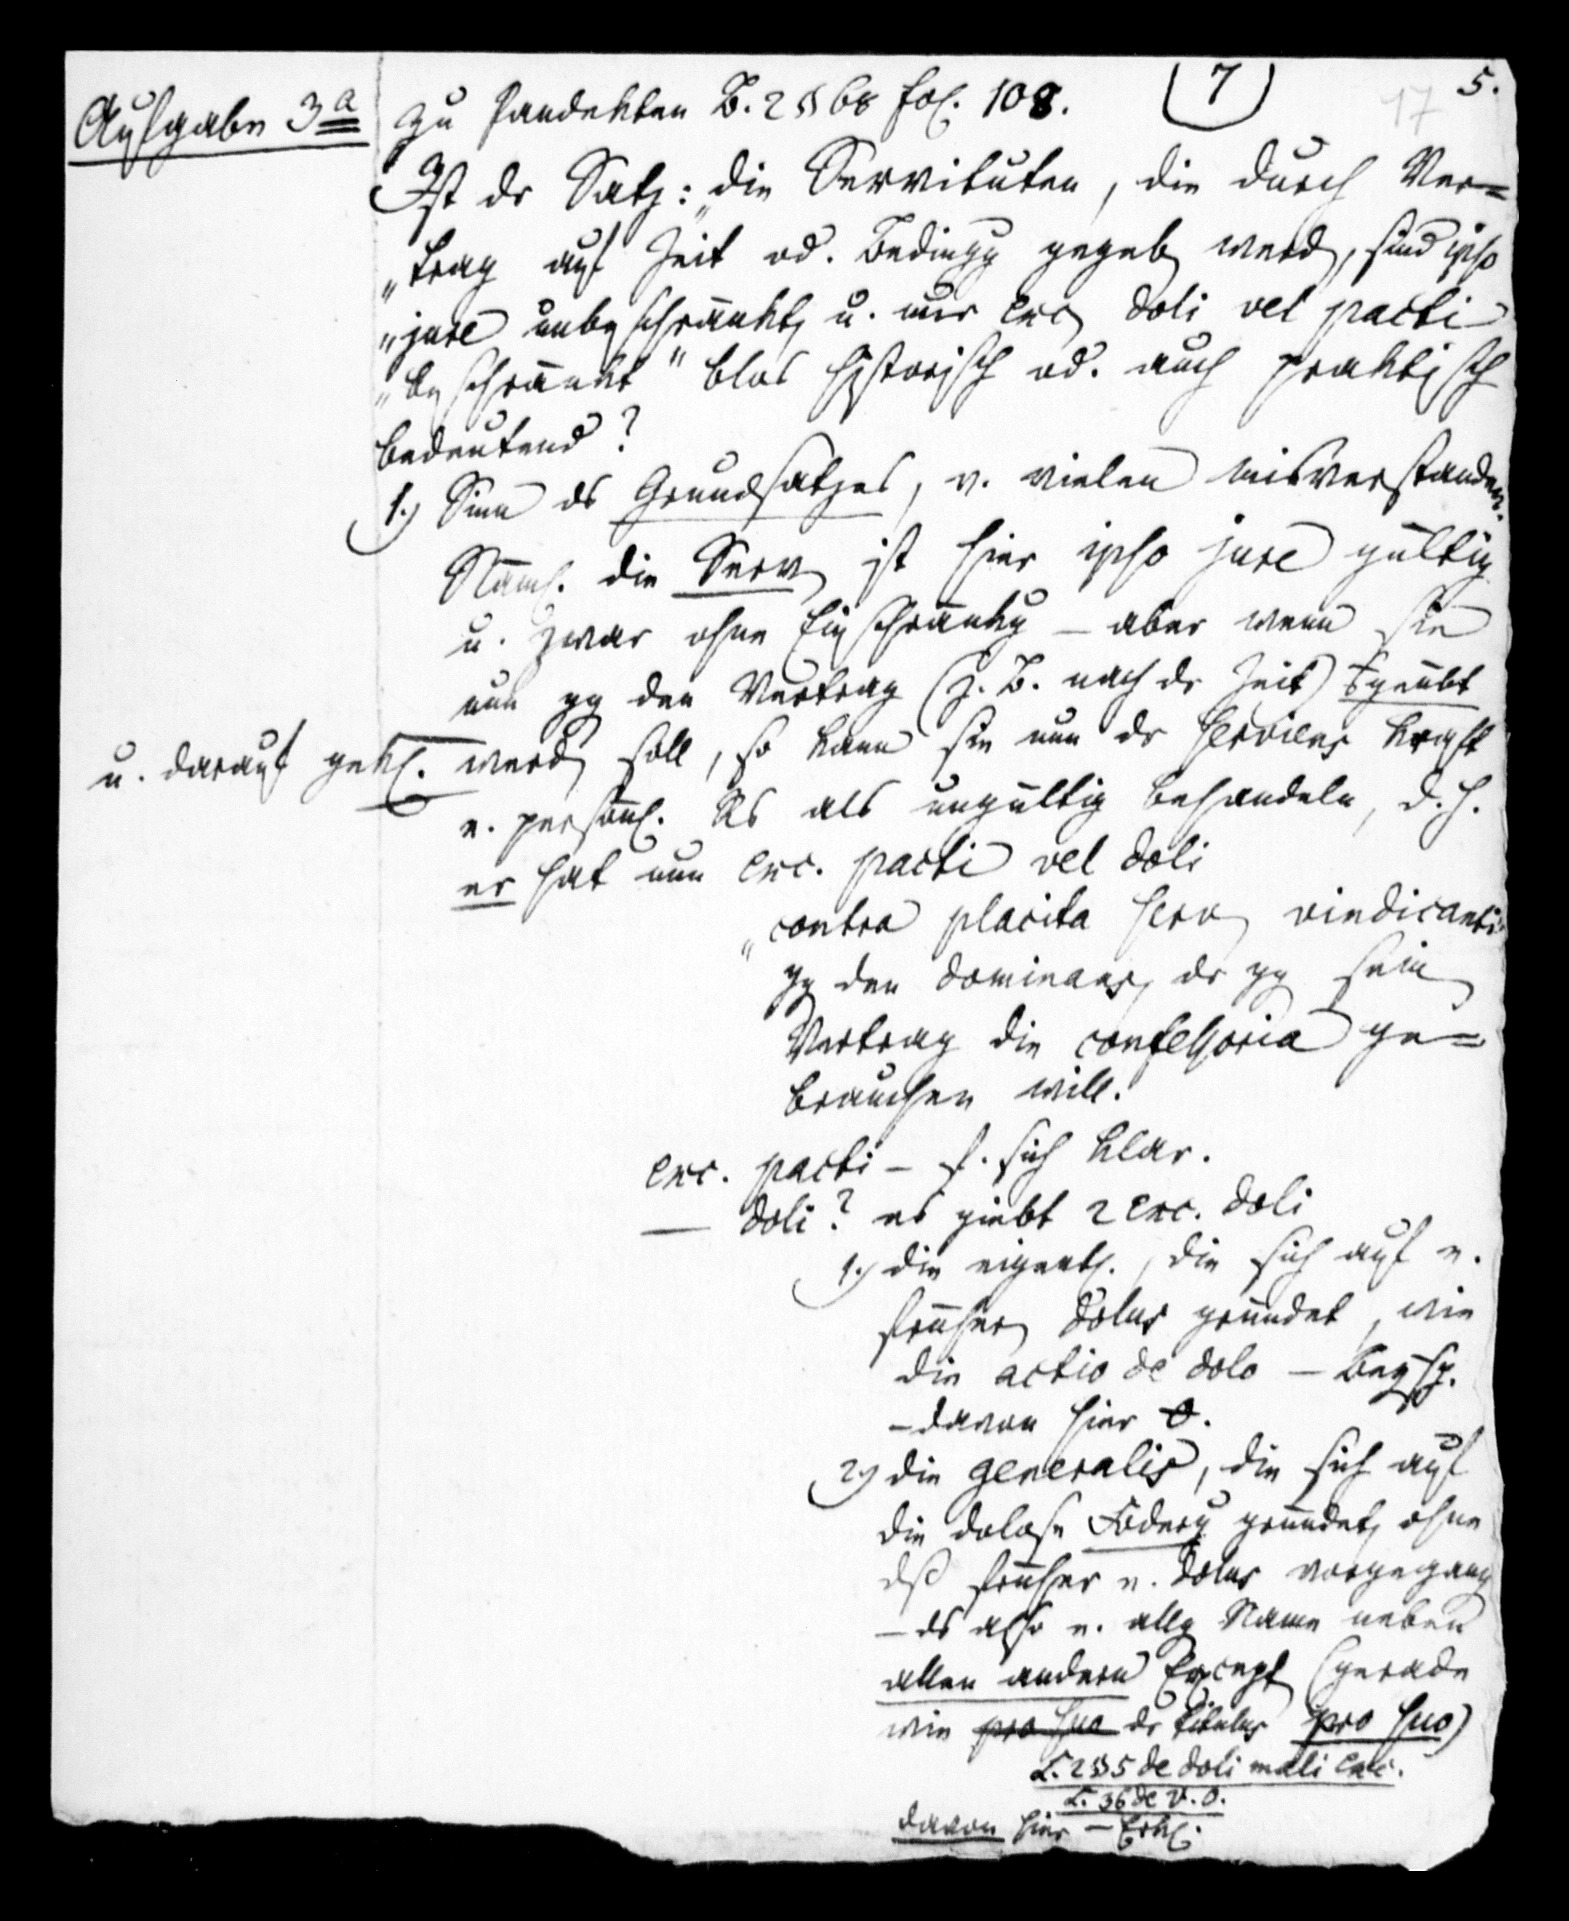 Aufgabe 3a
Zu Pandekten B. 2 § 68 fol. 108. (7) 5.
17
Ist dr Satz: „die Servituten, die durch Ver=
„trag auf Zeit od. Bedingg gegeb werd, sind ipso
„jure unbeschränkt, u. nur exc doli vel pacti
„beschränkt" blos historisch od. auch praktisch
bedeutend?
1.) Sinn ds Grundsatzes, v. vielen misverstanden.
Näml. die Serv ist hier ipso jure gültig
u. zwar ohne Einschränkg – aber wenn sie
nun gg den Vertrag (z. B. nach dr Zeit) geübt
u. darauf gekl. werd soll, so kann sie nun dr serviens kraft
e. persönl. Rs als ungültig behandeln, d. h.
er hat nun exc. pacti vel doli
„contra placita serv vindicanti"
gg den dominans, dr gg sein
Vertrag die confessoria ge=
brauchen will.
exc. pacti – f. sich klar.
— doli? es giebt 2 exc. doli
1.) die eigentl., die sich auf e.
früher dolus gründet, wie
die actio de dolo – Beysp.
– davon hier 0.
2.) die generalis, die sich auf
die dolose Foderg gründet, ohne
dß früher e. dolus vorgegang
– ds also e. allg Name neben
allen andern Except (gerade
wie pro suo dr titulus pro suo)
L. 2 § 5 de doli mali exc.
L. 36 de V. O.
davon hier – Erkl.